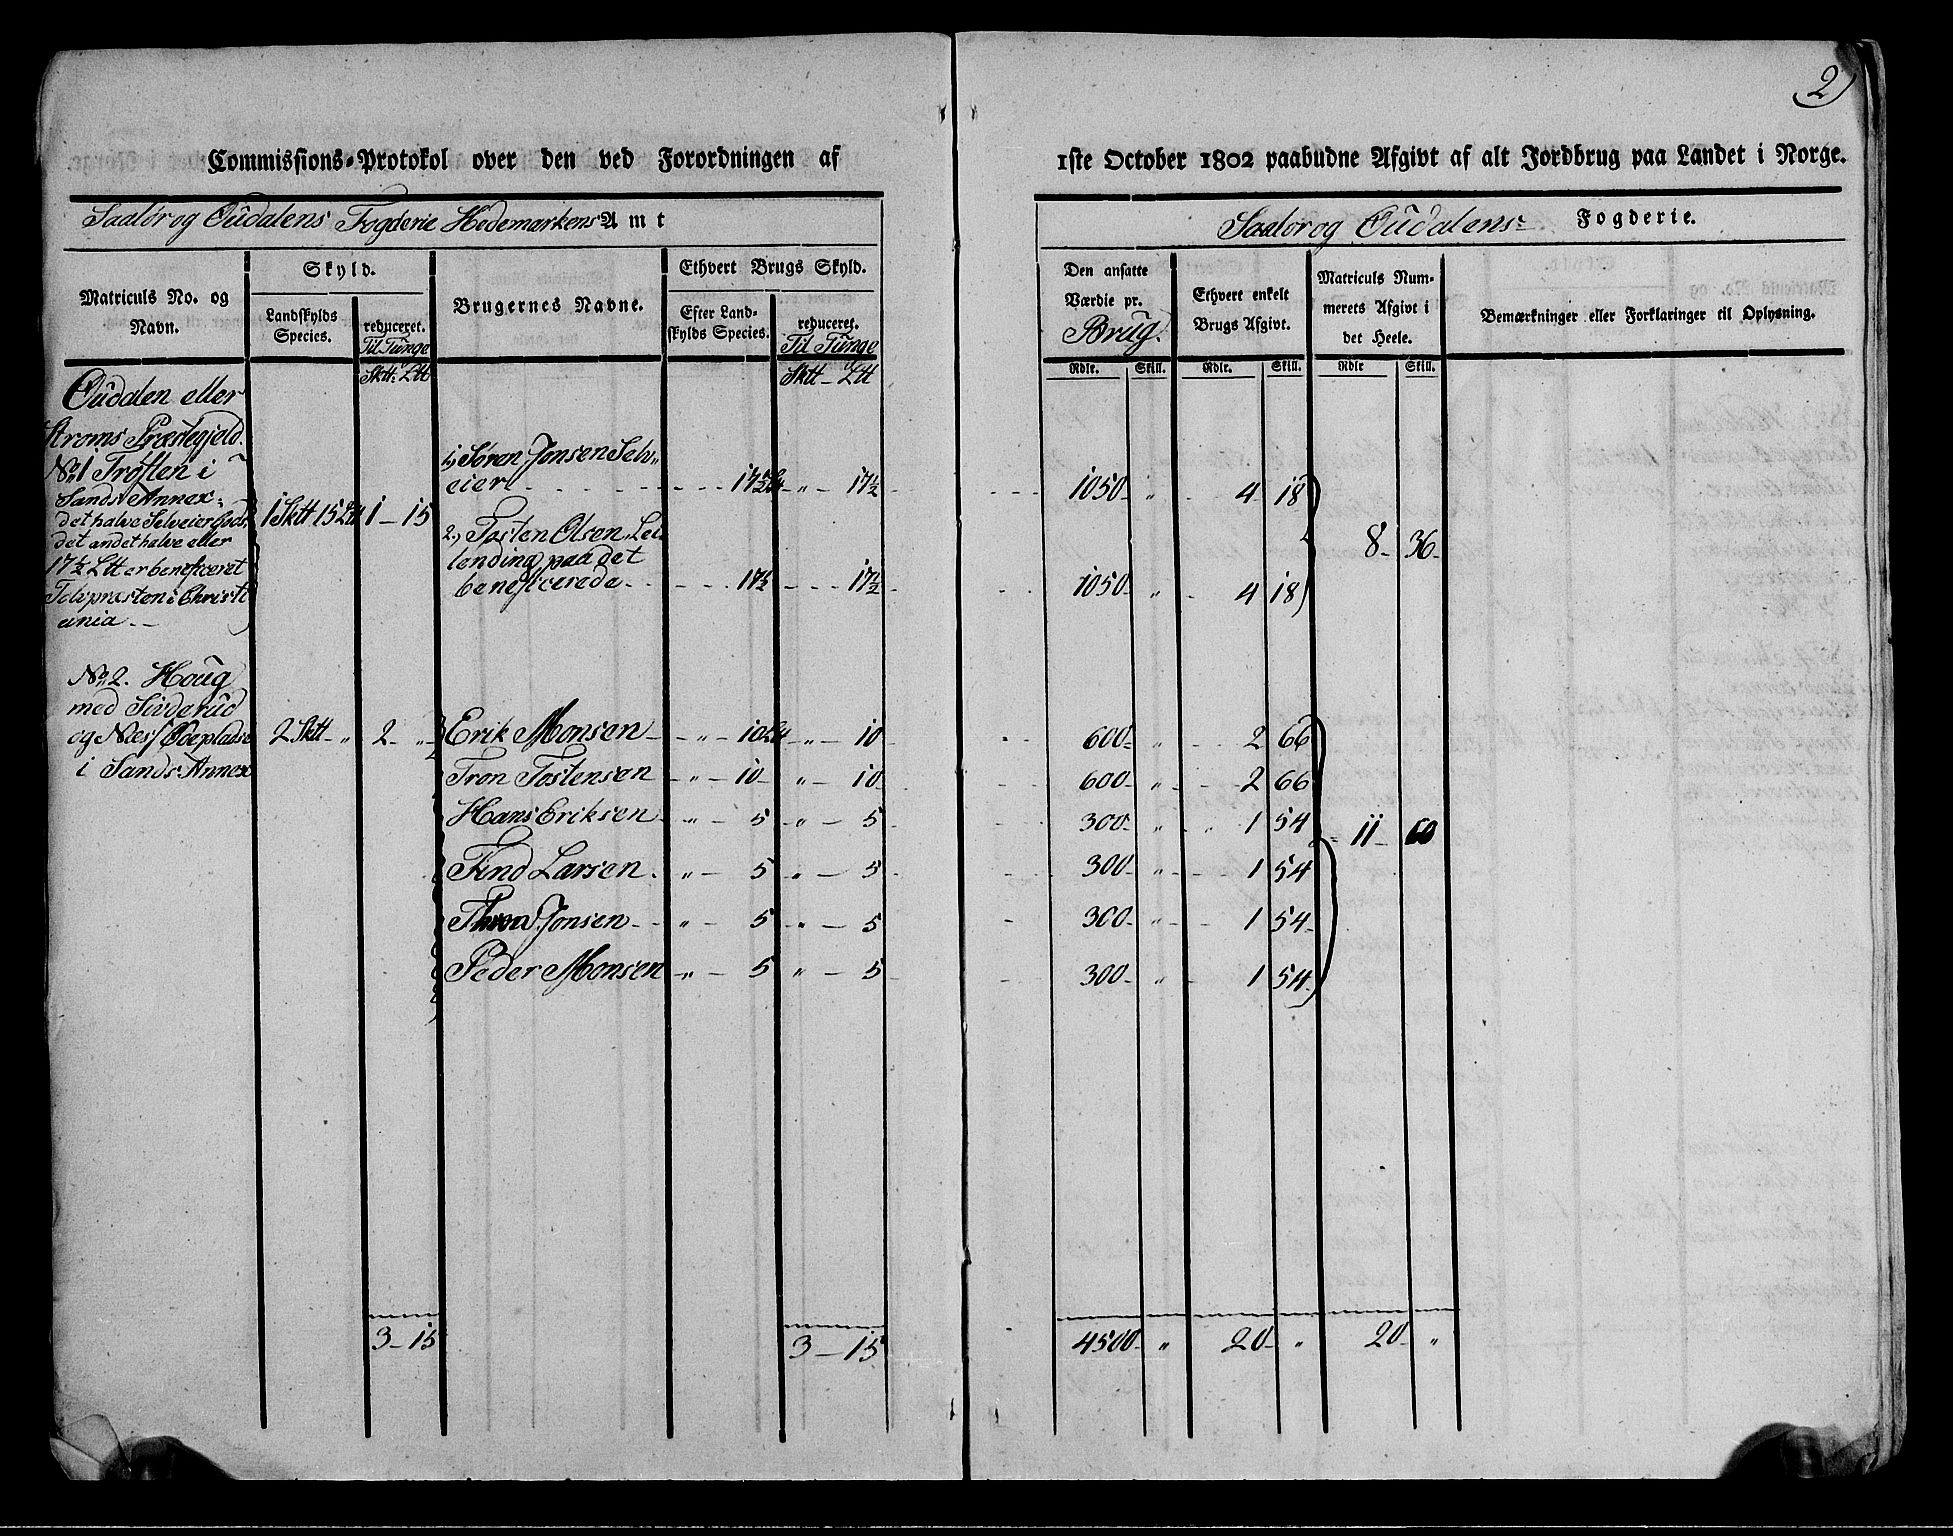 2)
Commissions-Protokol over den ved Forordningen af
1ste October 1802 paabudne Afgivt af alt Jordbrug paa Landet i Norge.
Saalør og Oudalens Fogderie Hedemarkens Amt
Saalør og Oudalens Fogderie.
Matriculs No. og Navn.
Skyld.
Landskylds Species.
reduceret. Til Tunge
Brugernes Navne.
Ethvert Brugs Skyld.
Efter Landskylds Species.
reduceret. Til Tunge
Den ansatte Værdie pr. Brug.
Ethvert enkelt Brugs Afgivt.
Matriculs Nummerets Afgivt i det Heele.
Bemærkninger eller Forklaringer til Oplysning.
Sktt: Ltt
Sktt - Ltt
Rdlr. Skill. Rdlr. Skill. Rdlr Skill.
Oudalen eller
Strøms Præstegjeld.
No. 1 Trøften i
Sands Annex
det halve Selveier Gods,
det andet halve eller
17½ Ltt er beneficeret
i Christi
ania
1 Sktt 15 Ltt 1 - 15
1, Søren Jonsen Selv„
eier 17½ Ltt „ 17½ 1050 „ 4 18
2, Tosten Olsen, Lei
lending paa det
beneficerede 17½ 17½ 1050 „ 4 18
8 36
No. 2. Houg
med Sinderud
og Næs Ødeplads
i Sands Annex
2 Sktt „ 2 „
Erik Monsen „ 10 Ltt „ 10 600 „ 2 66
Tron Tostensen „ 10 „ 10 600 „ 2 66
Hans Eriksen „ 5 „ 5 300 „ 1 54
Find Larsen „ 5 „ 5 300 „ 1 54
Thron Jonsen „ 5 „ 5 300 „ 1 54
Peder Monsen „ 5 „ 5 300 „ 1 54
11 60
3 - 15 3 - 15 4500 „ 20 „ 20 „